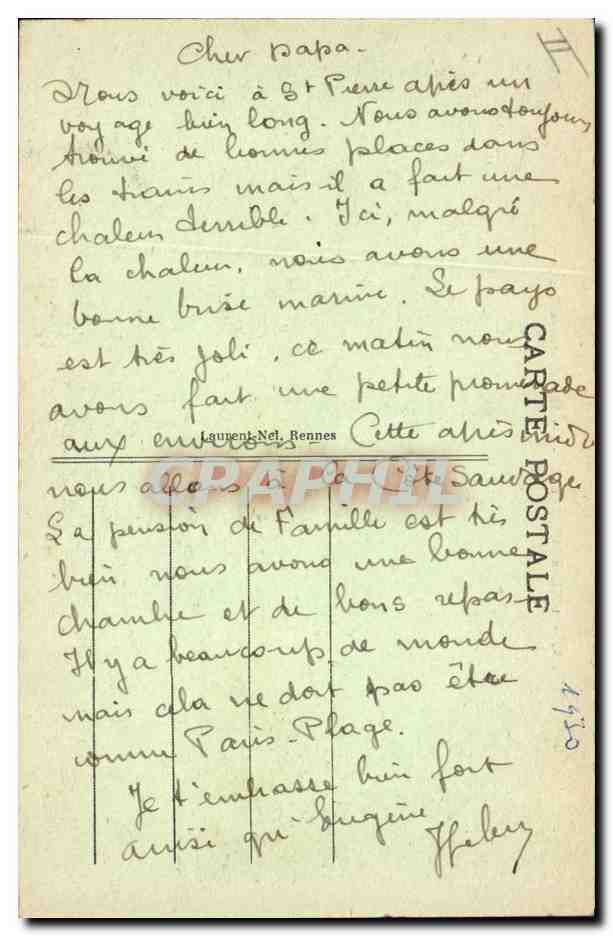 II
Cher papa -
Nous voici à St Pierre après un
voyage bien long. Nous avons toujours
trouvé de bonnes places dans
les trains mais il a fait une
chaleur terrible. Ici, malgré
la chaleur, nous avons une
bonne brise marine. Le pays
est très joli, ce matin nous
avons fait une petite promenade
aux environs - Cette après midi
Laurent-Nel, Rennes
nous allons à la Côte Sauvage
CARTE POSTALE
CARTE POSTALE CPAPHIL
La pension de Famille est très
bien nous avons une bonne
chambre et de bons repas -
Il y a beaucoup de monde
mais cela ne doit pas être
comme Paris-Plage.
Je t'embrasse bien fort
ainsi qu'Eugène
1930